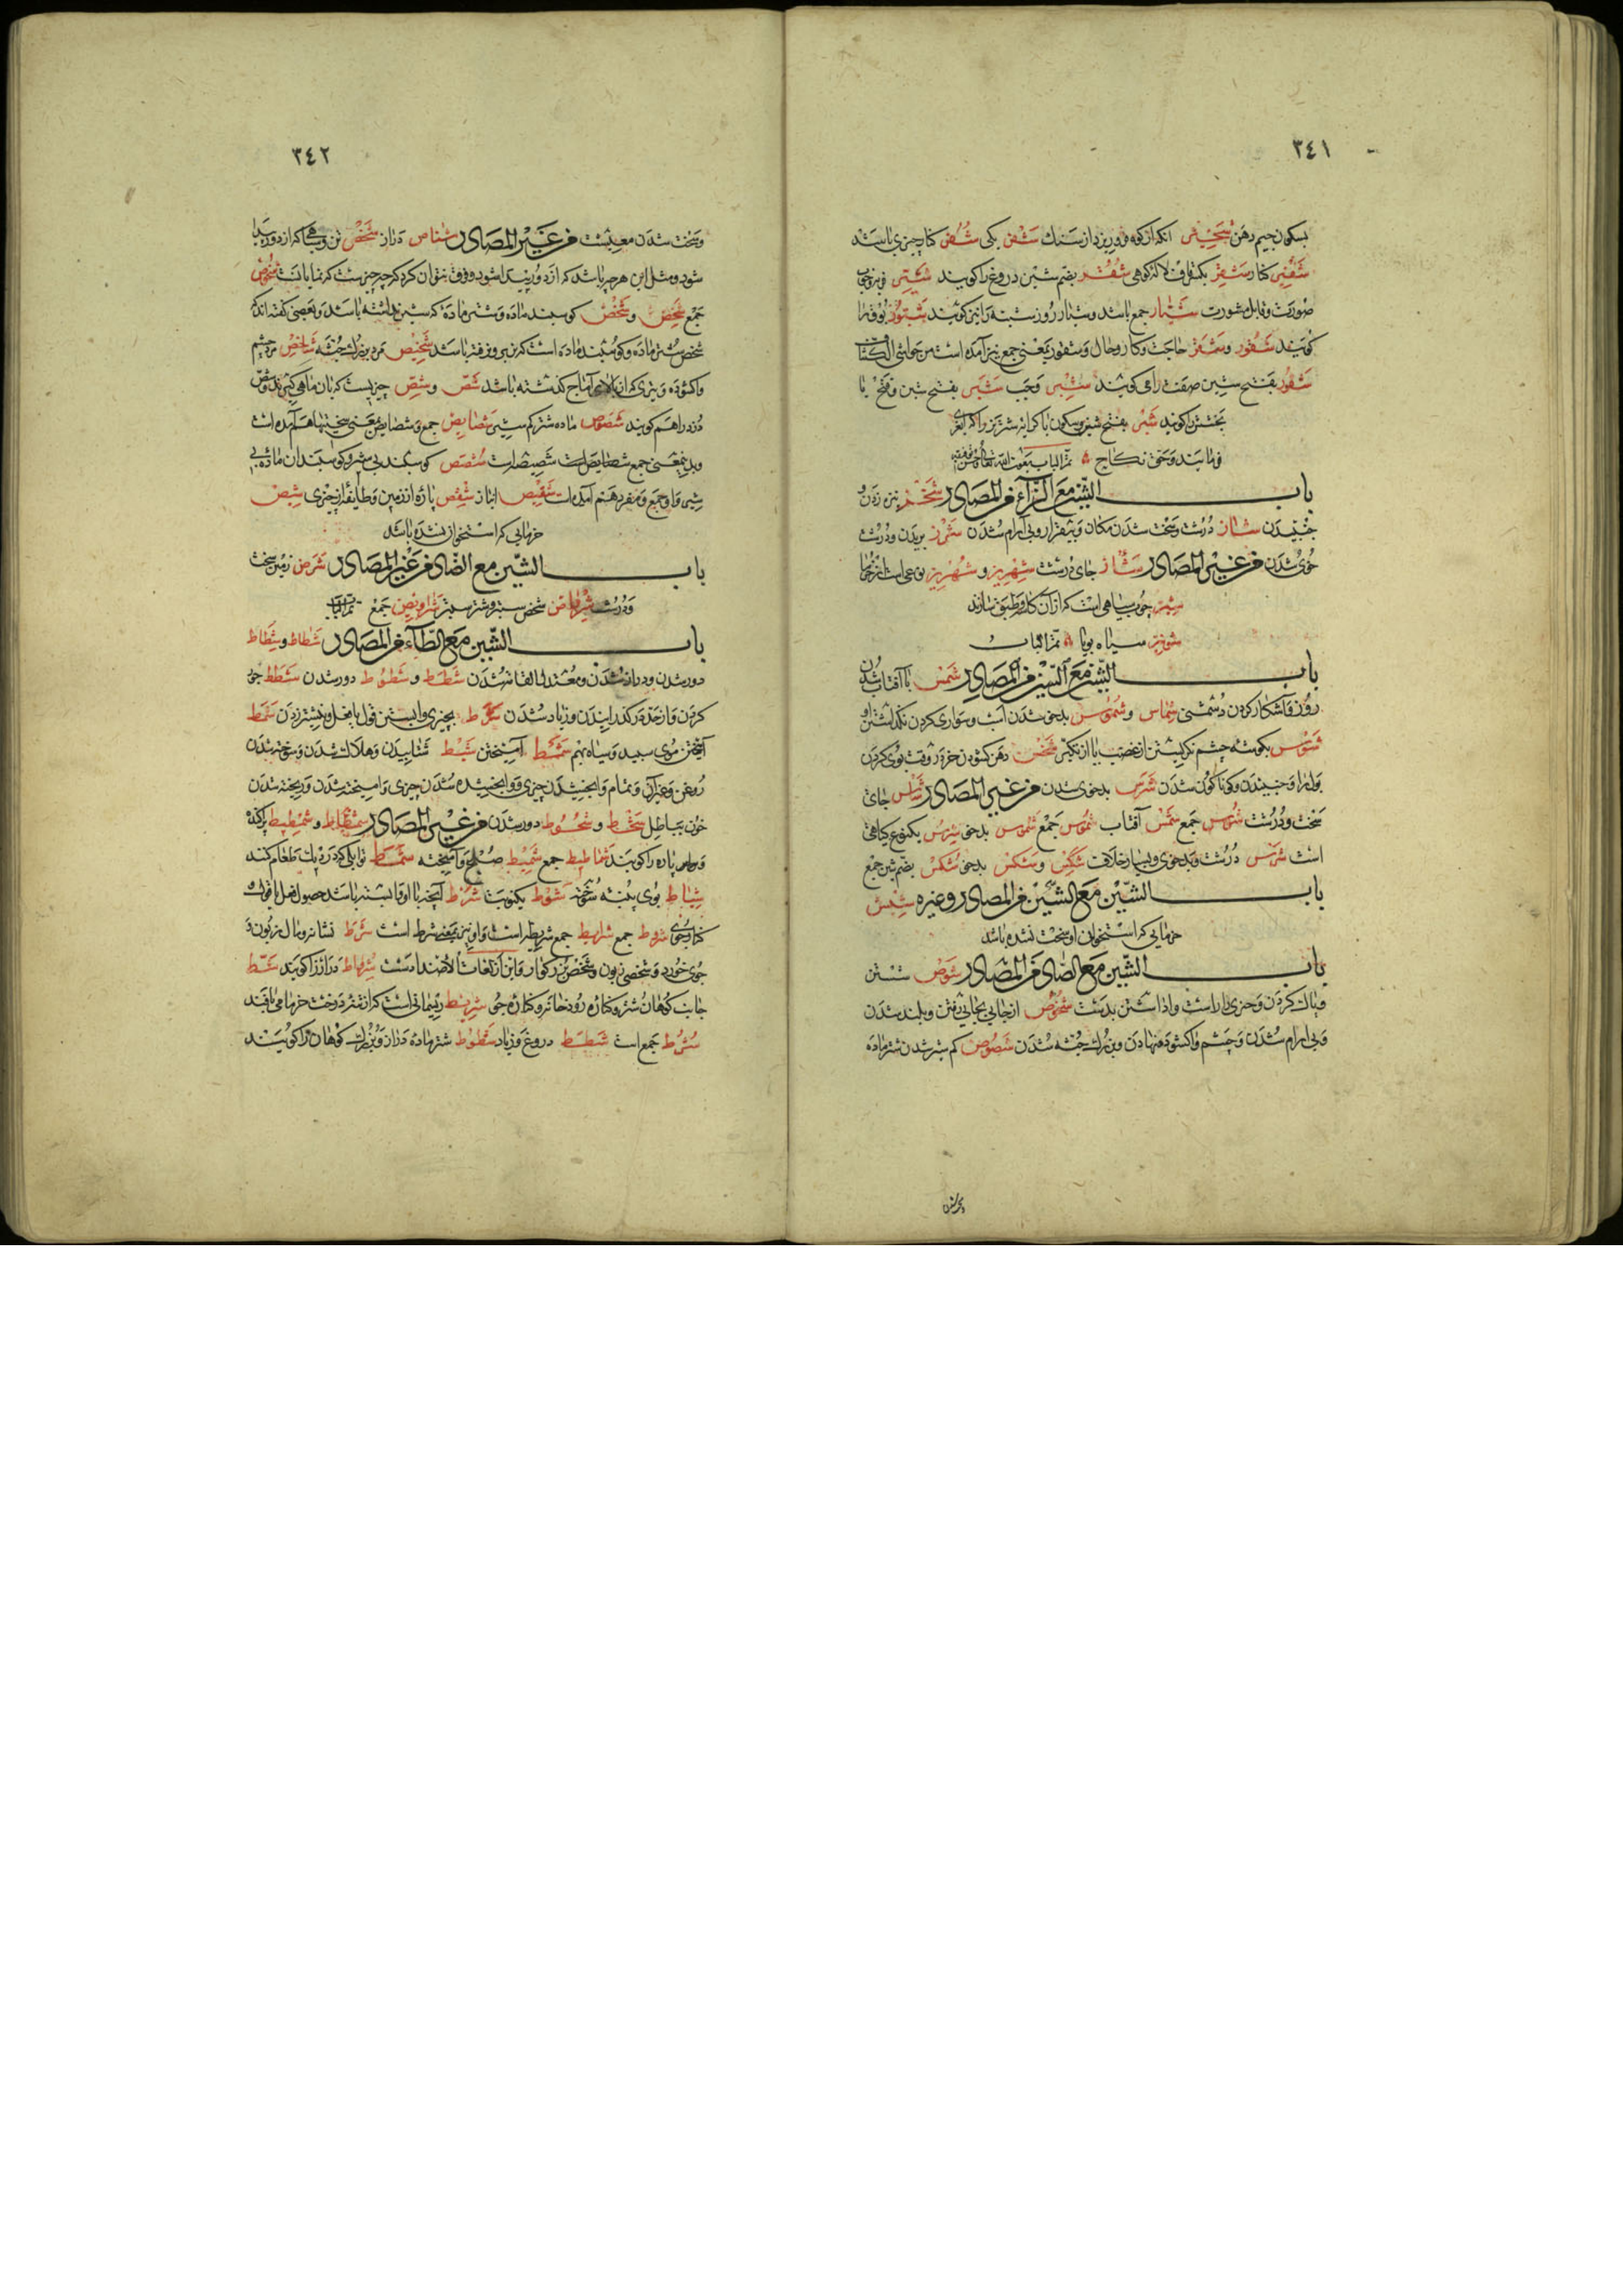 ٣٤١
بسکون جیم دهن انکه از کوه فرو ریزد از سنك شفر یکی شفر کنار چیزی باشد
کنار شفیر
بضم شین دروغ را کویند
صورت و قابل مشورت شیار جمع باشد و شیار روز شنبه را نیز کویند شبور بوق را
کویند شقور و شقر حاجت و کار و حال و شقور بمعنی جمع نیز آمده است من حواشی الکتاب
شقور بفتح شین صفت را می کویند شبر وجب شبر بفتح شین و فتح با
بخشش را کویند شبر بفتح شین و سکون با کرایه شتر نر را که بعر
فرمایند و حق نکاح تم الباب بعون الله تعالی
باب الشین مع الزآء من المصادر شخز نیزه زدن و
جنبیدن شاز درشت و سخت شدن مکان و بیقرار و بی آرام شدن شرز بریدن و درشت
خوی شدن من غیر المصادر شاز جای درشت شهریز و شهریز نوعی است از خرما
شیز چوب سیاهی است که از آن کاسه و طبق سازند
شونیز سیاه بویا تم الباب
باب الشین مع السین من المصادر شمس با آفتاب شدن
روز و آشکار کردن دشمنی شماس و شموس بدخو شدن اسب و سواری کردن نکذاشتن او
شوس بکوشه چشم نکریستن از غضب یا از تکبر شخس دهن کشودن خر در وقت بوی کردن
بول را و جنبیدن و کوناکون شدن شرس بدخوی شدن من غیر المصادر شاس جای
سخت و درشت شئوس جمع شمس آفتاب شموس جمع شموس بدخو شرس یکنوع کیاهی
است شرس درشت و بدخوی و بسیار خلاف شکس و شکس بدخو شکس بضم شین جمع
باب الشین مع الشین من المصادر و غیره شیش
خرمایی که استخوان او سخت نشده باشد
باب الشین مع الصاد من المصادر شوص شستن
و پاك کردن و چیزی را راست واداشتن بدست شخوص از جایی بجایی رفتن و بلند شدن
و بی ارام شدن و چشم واکشوده نهادن و بزرك جثه شدن شصوص کم شیر شدن شتر ماده
٣٤٢
و سخت شدن معیشت من غیر المصادر شناص دراز شخص تن و سیاهی که از دور پیدا
شود و مثل این هر چه باشد که از دور پیدا شود و فرق نتوان کرد که چه چیز است که نمایانست شخوص
جمع شخص و شخص کوسبند ماده و شتر ماده که شیر نداشته باشد و بعضی کفته اند که
شخص شتر ماده و کوسبند ماده است که بر او نر نرفته باشد شخیص مرد بزرك جثه شاخص مرد چشم
واکشوده و تیری که از بالای آماج کذشته باشد شص و شص چیزیست که بان ماهی کیرند و شص
دزد را هم کویند شصوص ماده شتر کم شیر شصایص جمع و شصایص بمعنی سختیها هم آمده است
و بدین معنی جمع شصیصه است شصص کوسبند بی شیر و کوسبندان ماده بی
شیر و او جمع و مفرد هم آمده است شقیص انباز شقص پاره از زمین و طایفه از چیزی شیص
خرمایی که استخوان نشده باشد
باب الشین مع الضاد من غیر المصادر شرض زمین سخت
و درشت شرواض شخص ستبر و شتر ستبر شراویض جمع تم الباب
باب الشین مع الطآء من المصادر شطاط و شطاط
دور شدن و دراز شدن و معتدل القامه شدن شطط و شطوط دور شدن شطط جور
کردن و از حد در کذرانیدن و زیاد شدن شرط بچیزی وابستن قول یا فعل و نیشتر زدن شمط
آمیختن موی سبید و سیاه بهم شمط آمیختن شیط شتابیدن و هلاك شدن و سوخته شدن
روغن و غیر آن و تمام وابخشیدن چیزی و وابخشیده شدن چیزی و آمیخته شدن و ریخته شدن
خون بباطل شحط و شحوط دور شدن من غیر المصادر شمطاط و شمطیط پراکنده
و پاره پاره را کویند شماطیط جمع شمیط صبح و آمیخته شماط توابلی که در دیك طعام کنند
شیاط بوی پنبه سوخته شوط یکنوبت شرط آنچه با او وابسته باشد حصول فعل یا قول
شروط جمع شرایط جمع شریطه است و او نیز بمعنی شرط است شرط نشانه و مال زبون و
جوی خورد و شخصی زبون و شخص بزرکوار و این از لغات الاضداد است شرواط دراز را کویند شط
جانب کوهان شتر و کناره رودخانه و کناره جوی شریط ریسمانی است که از نفر درخت خرما می بافند
شرط جمع است شطط دروغ و زیاد شطوط شتر ماده دراز و بزرك کوهان را کویند